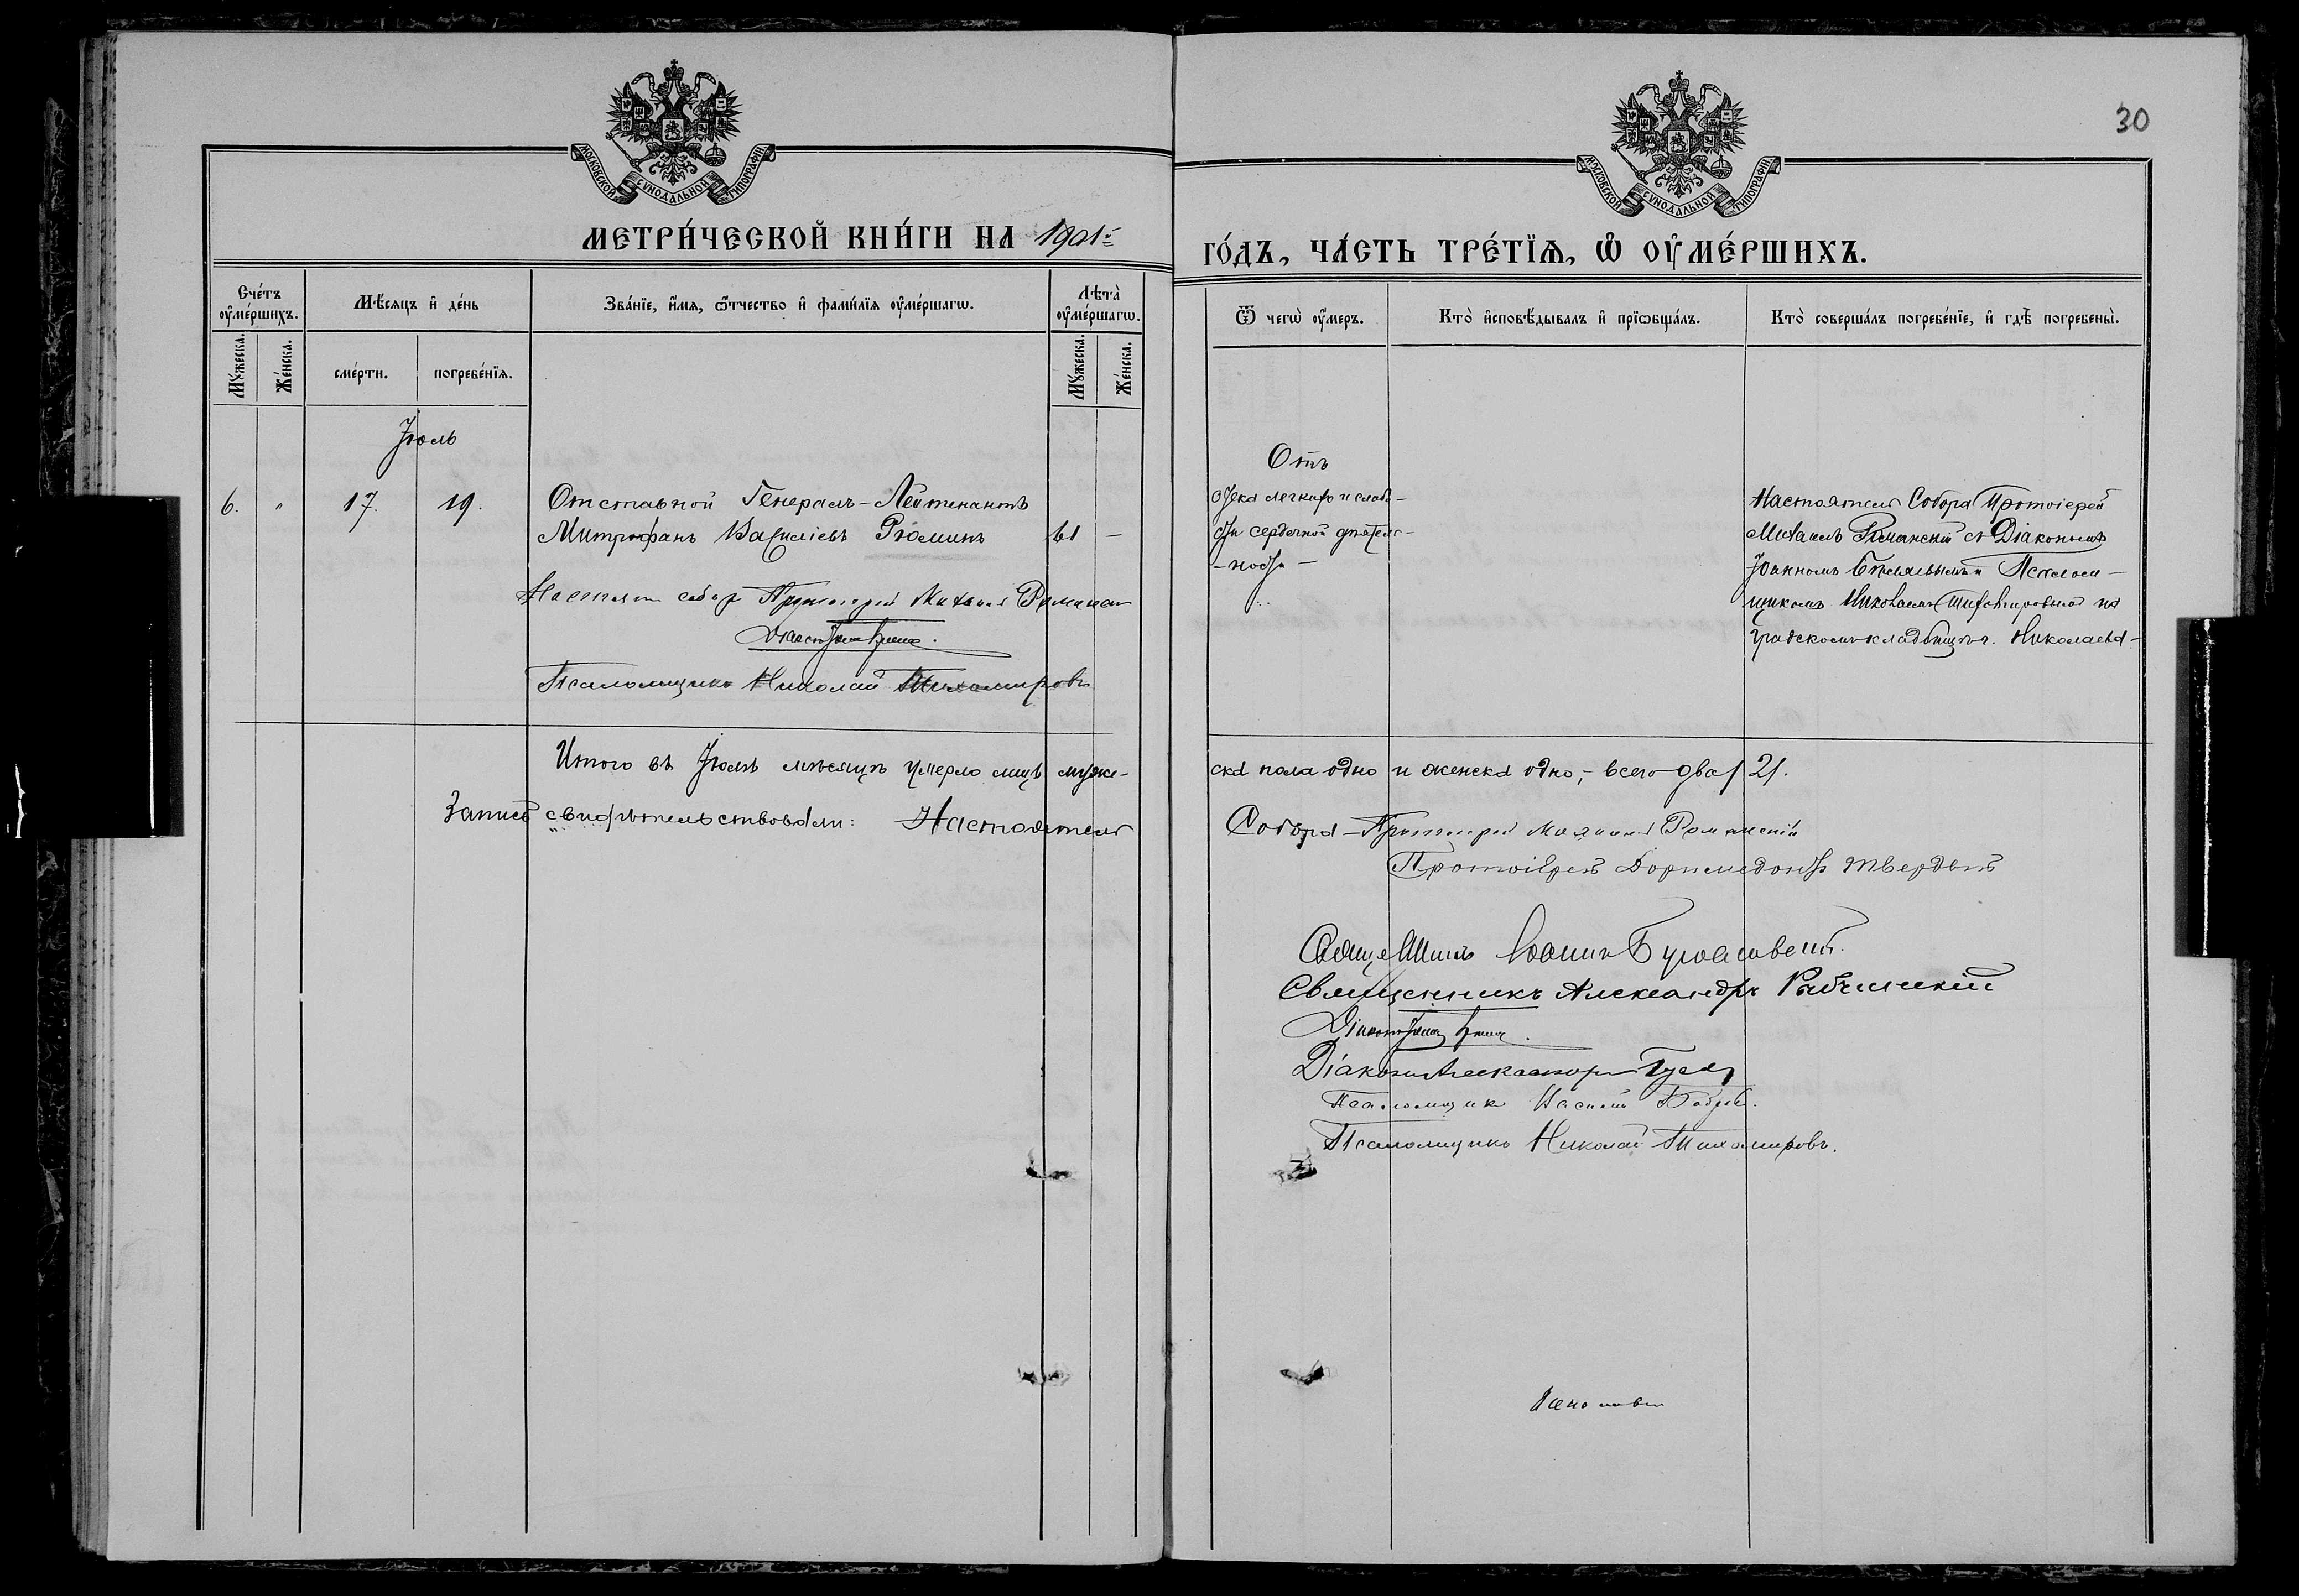 30
МОСКОВСКОЙ СѴНОДАЛЬНОЙ ТИПОГРАФІИ
МОСКОВСКОЙ СѴНОДАЛЬНОЙ ТИПОГРАФІИ
МЕТРИ́ЧЕСКОЙ КНИ́ГИ НА 1901
ГО́ДЪ, ЧА́СТЬ ТРЕ́ТЇѦ, Ѡ҆ ОУ҆МЕ́РШИХЪ.
Сче́тъ оу҆ме́ршихъ.
Мꙋ́жеска.
Же́нска.
Мѣ́сяцъ и҆ де́нь
сме́рти.
погребе́нїѧ.
Зва́нїе, и҆́мѧ, ѻ҆́тчество и҆ фами́лїѧ оу҆ме́ршагѡ.
Лѣ́та̀ оу҆ме́ршагѡ.
Мꙋ́жеска.
Же́нска.
Ѿ чегѡ̀ оу҆́меръ.
Кто̀ и҆сповѣ́дывалъ и҆ прїѡбща́лъ.
Кто̀ соверша́лъ погребе́нїе, и҆ гдѣ̀ погребены̀.
Іюль
6. " 17. 19.
Отставной Генералъ-Лейтенантъ
Митрофанъ Василіевъ Рюминъ 61 —
Отъ
отека легкихъ и слабо-
сти сердечной дѣятель-
-ности-
Настоятель Собора Протоіерей
Михаилъ Романскій съ Діакономъ
Іоанномъ и Псалом-
щикомъ Николаемъ Тихомировымъ на
градскомъ кладбищѣ г. Николаева.
собор Протоіерей Михаил
Псаломщикъ Николай Тихомировъ
Итого въ Іюлѣ мѣсяцѣ умерло лицъ муже-
ска пола одно и женска одно, - всего два / 2/.
Запись свидѣтельствовали: Настоятель
Собора - Протоіерей Михаилъ Романскій
Протоіерей Доримедонтъ Твердый
Священникъ Іоаннъ
Священникъ Александръ
Діаконъ
Діаконъ Александръ
Псаломщикъ Василій
Псаломщикъ Николай Тихомировъ.